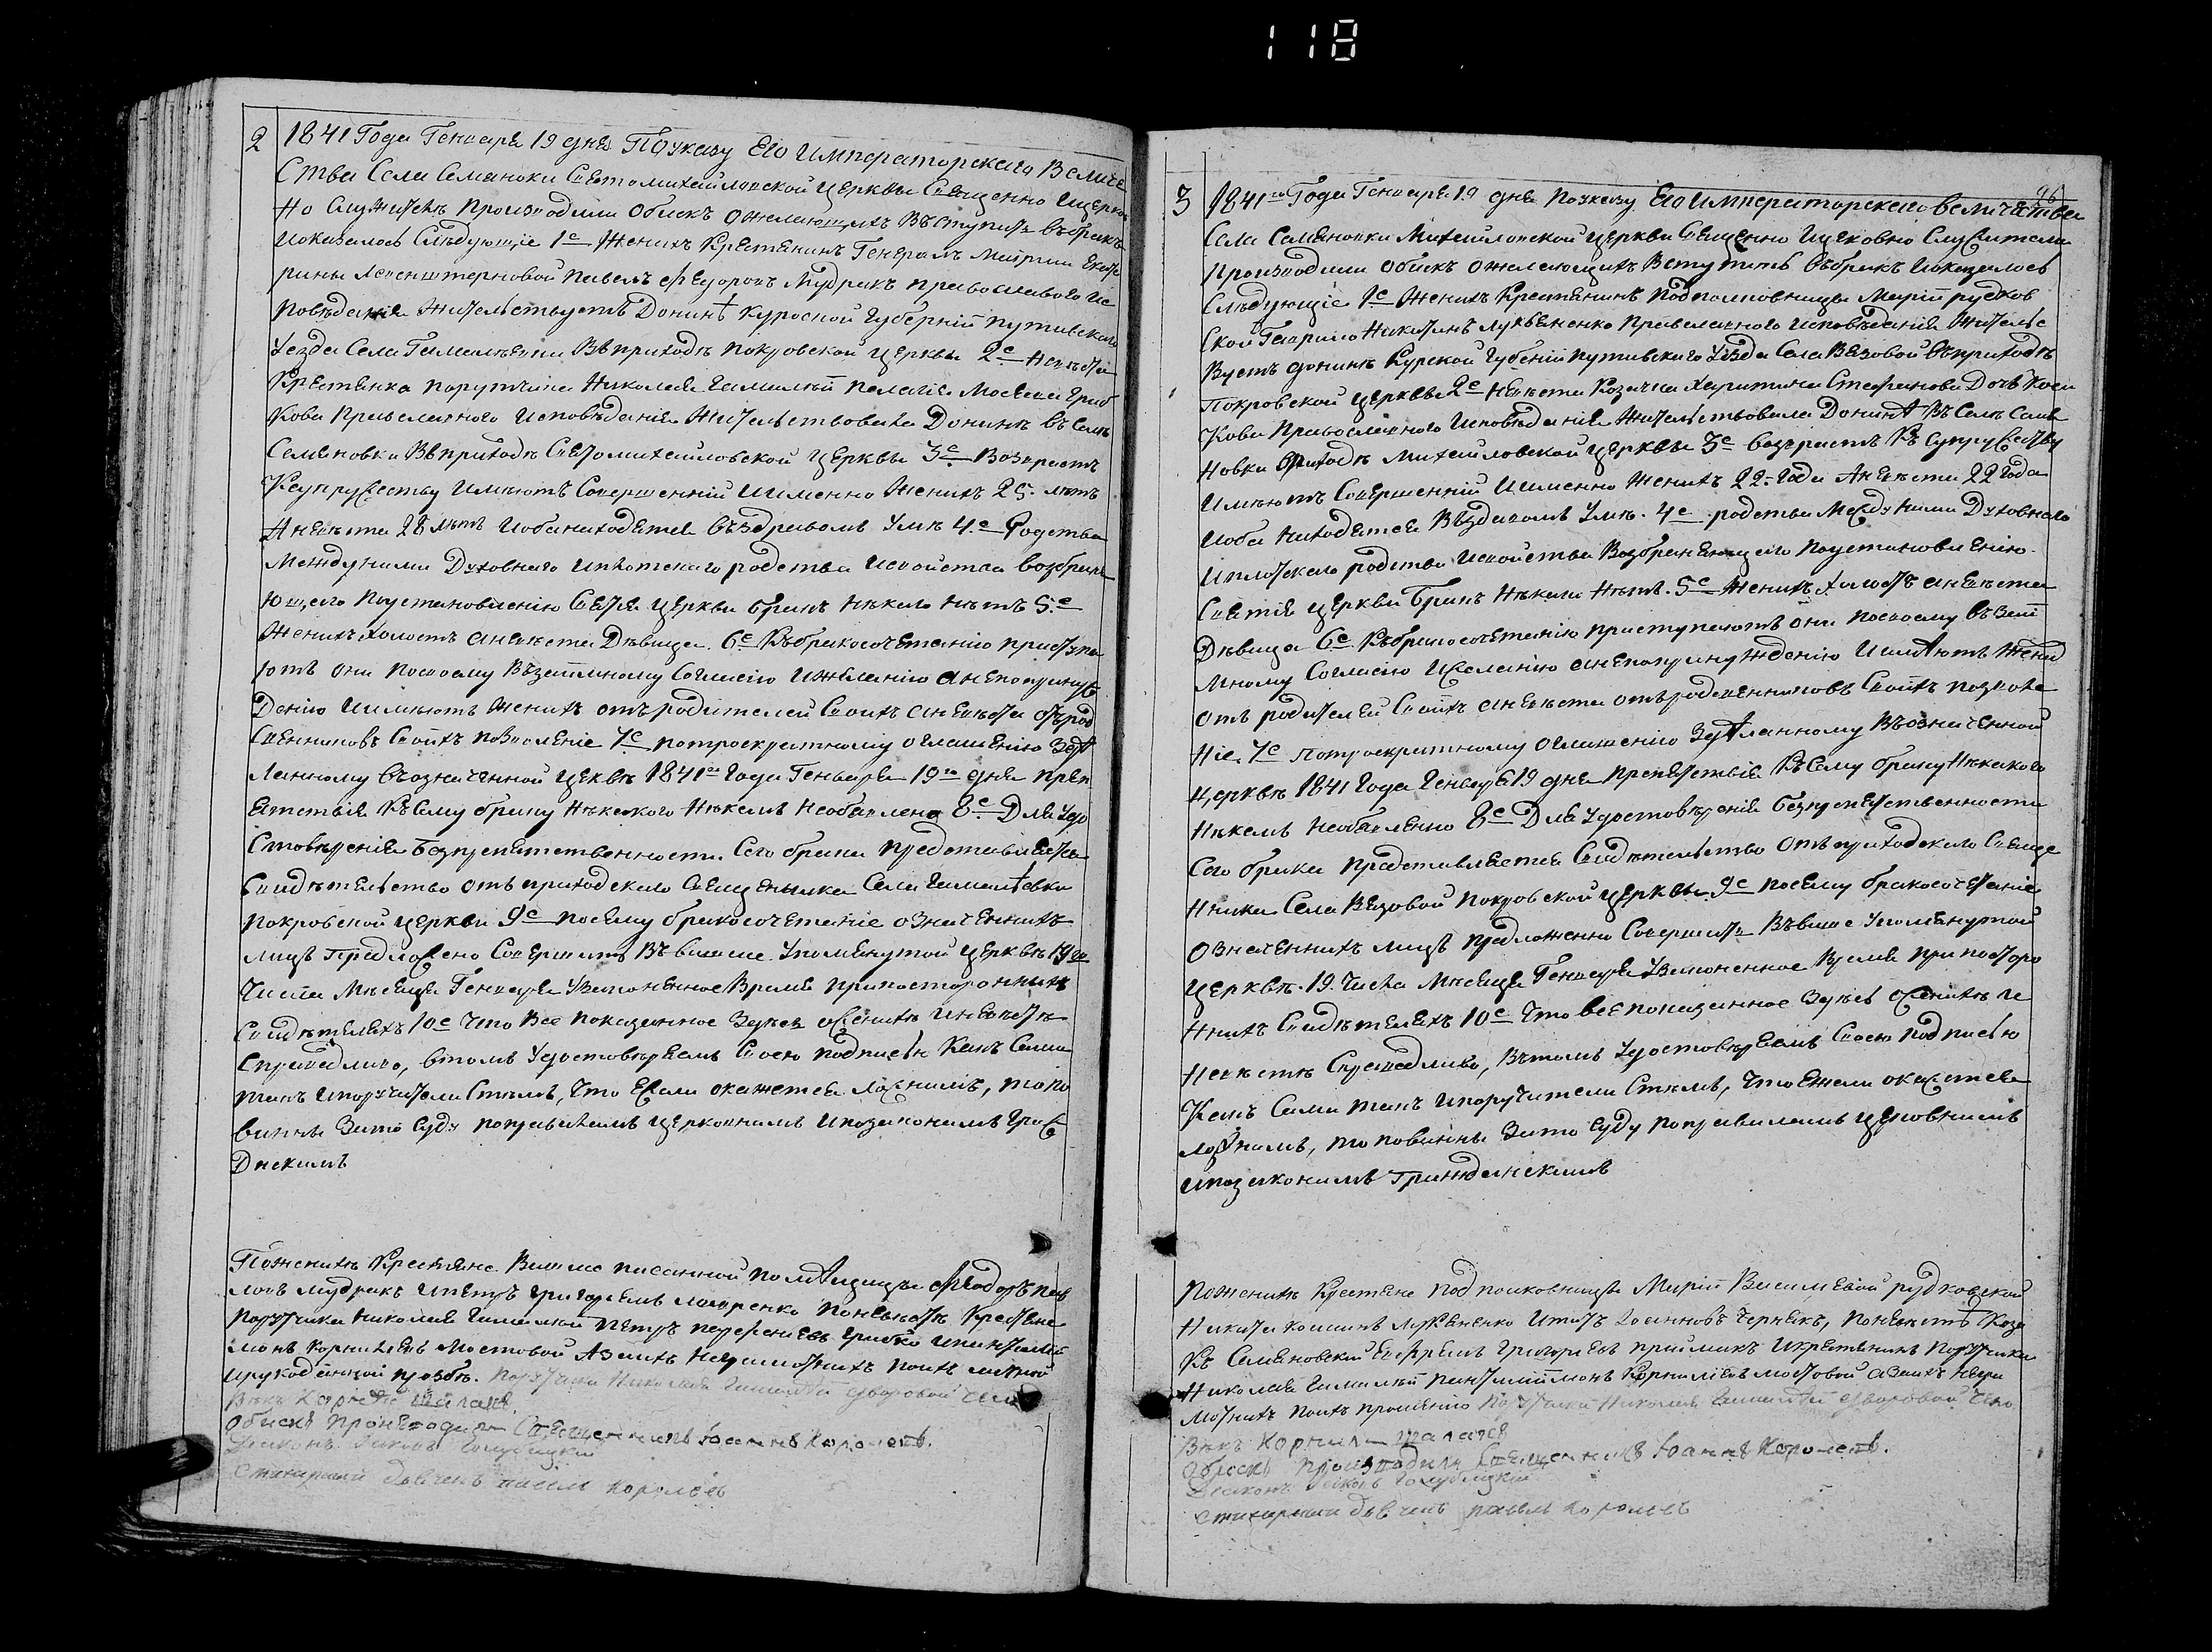 118
2
1841 Года Генваря 19 дня По указу Его Императорскаго Величе
ства Села Семяновки Свято михайловской церквы Священно ицерков
но Служители Производили Обискъ ожелающихъ Вступить въбракъ
иоказалось Слѣдующіе 1е Женихъ Крестянинъ Генералъ Маіорши Екате
рины Павелъ Федоровъ Мудракъ православного ис
повѣданія Жительствуетъ Донинѣ Курской Губерніи Путивскаго
Уезда Села Гамалѣевки Вприходѣ покровской церквы 2е Невѣста
Крестянка порутчика Николая Гамалѣи Пелагія
кова Православного Исповѣданія Жительствовала Донинѣ въ Селѣ
Семяновки Вприходѣ Святомихайловской церквы 3е Возрастъ
Ксупружеству Имѣютъ Совершенній Иименно Женихъ 25 лѣтъ
Аневѣста 28 лѣтъ Иоба находятся въздравомъ Умѣ 4е Родства
Между ними Духовнаго иплотскаго родства исвойства возбраня
ющаго Поустановленію Святія церкви бракъ Нѣкаго нѣтъ 5е
Женихъ холостъ аневѣста Дѣвица. 6е Къбракосочетанію приступа
ютъ они посвоему Възаімному Согласію ижеланію анепопринуж
денію Иимѣютъ Женихъ отъ родителей Своихъ аневѣста отърод
ственниковъ Своихъ позволеніе 7е потроекратному оглашенію Здѣ
ланному въозначенной церквѣ 1841го Года Генваря 19го дня преп
ятствія Къ Сему браку Нѣкакого Нѣкемъ Необявлено 8е Для Удо
стовѣренія безпрепятственности Сего брака Представляется
Свидѣтельство отъ приходскаго Священника Села Гамалѣевки
Покровской церкви 9е посему бракосочетаніе означеннихъ
лицъ Предложено Совершить Въвишше Упомянутой церквѣ 19го
Числа Мѣсяца Генваря Узаконенное Время припостороннихъ
Свидѣтеляхъ 10е Что все показанное Здѣсь оженихѣ иневѣстѣ
Справедливо, втомъ Удостовѣряемъ Своею подписью Какъ Сами
такъ ипоручители Стѣмъ, Что Ежели окажется ложнимъ, то по
виннѣ Зато Суду поправиламъ церковнимъ ипозаконамъ граж
данскимъ
Поженихѣ Крестяне Вишше писанной помѣщици Федоръ Пав
ловъ Мудракъ ипетръ Григорьевъ Лазаренко Поневѣстѣ Крестяне
Порутчика Николая Гамалѣи Петръ Парфеніевъ Грибко ипантелей
монъ Корнилѣевъ Мостовой Азанихъ Неграмотнихъ поихъ личной
ирукоданной прозбѣ. Порутчика Николая Гамалѣи дворовой чело
вѣкъ Корнилій Шалаев
Обискъ Производилъ Священникъ Іоаннъ Королевъ.
Дияконъ Іяковъ Голубицкій
Стихарный дьячекъ Павелъ Королевъ
26
3
1841го Года Генваря 19 дня Поуказу Его Императорскаго величества
Села Семяновки Михайловской церкви Священно ицерковно Служители
Производили Обискъ ожелающихъ Вступить въбракъ иоказалось
Слѣдующіе 1е Женихъ Крестянинъ подполковници Маріи рудков
ской Гаврило Никитинъ Лукяненко православного исповѣданія Жительс
вуетъ донинѣ Курской Губеніи Путивского Уѣзда Села Вязовой въприходѣ
Покровской церквы 2е Невѣста Козачка Харитина Стефанова Дочь
кова Православного Исповѣданія Жительствовала Донинѣ въ Селѣ Семя
новки Вприходѣ Михайловской церквы 3е возърастъ Къ Супружеству
Имѣютъ Совершенній Иименно Женихъ 22 года Аневѣста 22 года
Иоба находятся Въздравомъ Умѣ. 4е родства Между ними Духовнаго
Иплотскаго родства исвойства Возбраняющаго Поустановленію
Святія церкви бракъ Нѣкаго Нѣтъ. 5е Женихъ холостъ аневѣста
Дѣвица 6е Къбракосочетанію приступаютъ они посвоему въЗаи
мному Согласію ижеланію анепопринужденію Иимѣютъ Жених
отъ родителей Своихъ аневѣста отъродственниковъ Своихъ позволе
ніе. 7е потроекратному оглашенію Здѣланному Въозначенной
церквѣ 1841 Года Генваря 19 дня Препятствія Къ Сему браку Нѣкакого
Нѣкемъ Необявленно 8е Для Удостовѣренія безпрепятственности
Сего брака Представляется Свидѣтельство Отъ приходскаго Свяще
нника Села Вязовой покровской церквы. 9е посему бракосочетаніе
Означеннихъ лицъ предложенно Совершить Въвише Упомянутой
церквѣ. 19. Числа Мѣсяца Генваря Узаконенное Время припосторо
ннихъ Свидѣтеляхъ 10е Что все показанное Здѣсь оженихѣ не
невѣстѣ Справедливо, Вътомъ Удостовѣряемъ Своею подписью
Какъ Сами такъ ипоручители Стѣмъ, Что ежели окажется
ложнимъ, то повинны Зато Суду поправиламъ церковнимъ
ипозаконамъ Гражданскимъ
Поженихѣ Крестяне подполковници Маріи Василіевой рудковской
Никита Лукяненко Іоанновъ Чернякъ, поневѣстѣ Коза
къ Семяновский Ефремъ Григориевъ приймакъ икрестянинъ Порутчика
Николая Гамалѣи Пантелиймонъ Корнилиевъ мостовой азаихъ Негра
мотнихъ поихъ прошенію Порутчика Николая Гамалѣи дворовой чело
вѣкъ Корнилій Шалаев
Обискъ Производилъ Священникъ Іоаннъ Королевъ.
Дияконъ Іяковъ Голубицкій
Стихарный дьячекъ Павелъ Королевъ